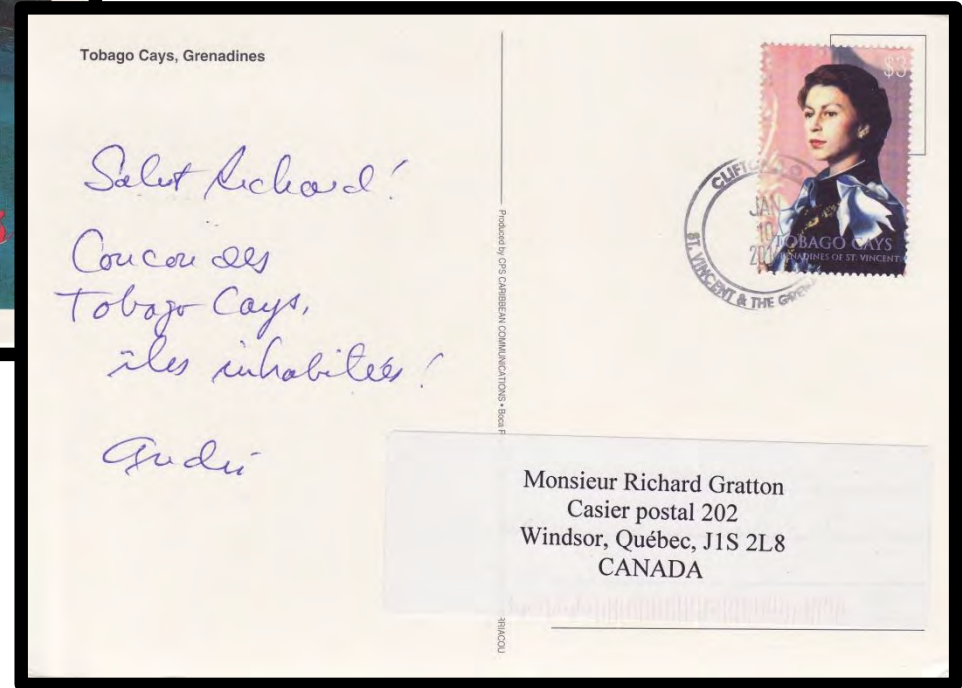 Tobago Cays, Grenadines
Salut Richard!
Coucou des
Tobago Cays,
îles inhabitées!
André
Produced by CPS CARIBBEAN COMMUNICATIONS • Boca
RIACOU
$3
TOBAGO CAYS
GRENADINES OF ST. VINCENT
CLIFTON
JAN
10
ST. VINCENT & THE GREN
Monsieur Richard Gratton
Casier postal 202
Windsor, Québec, J1S 2L8
CANADA